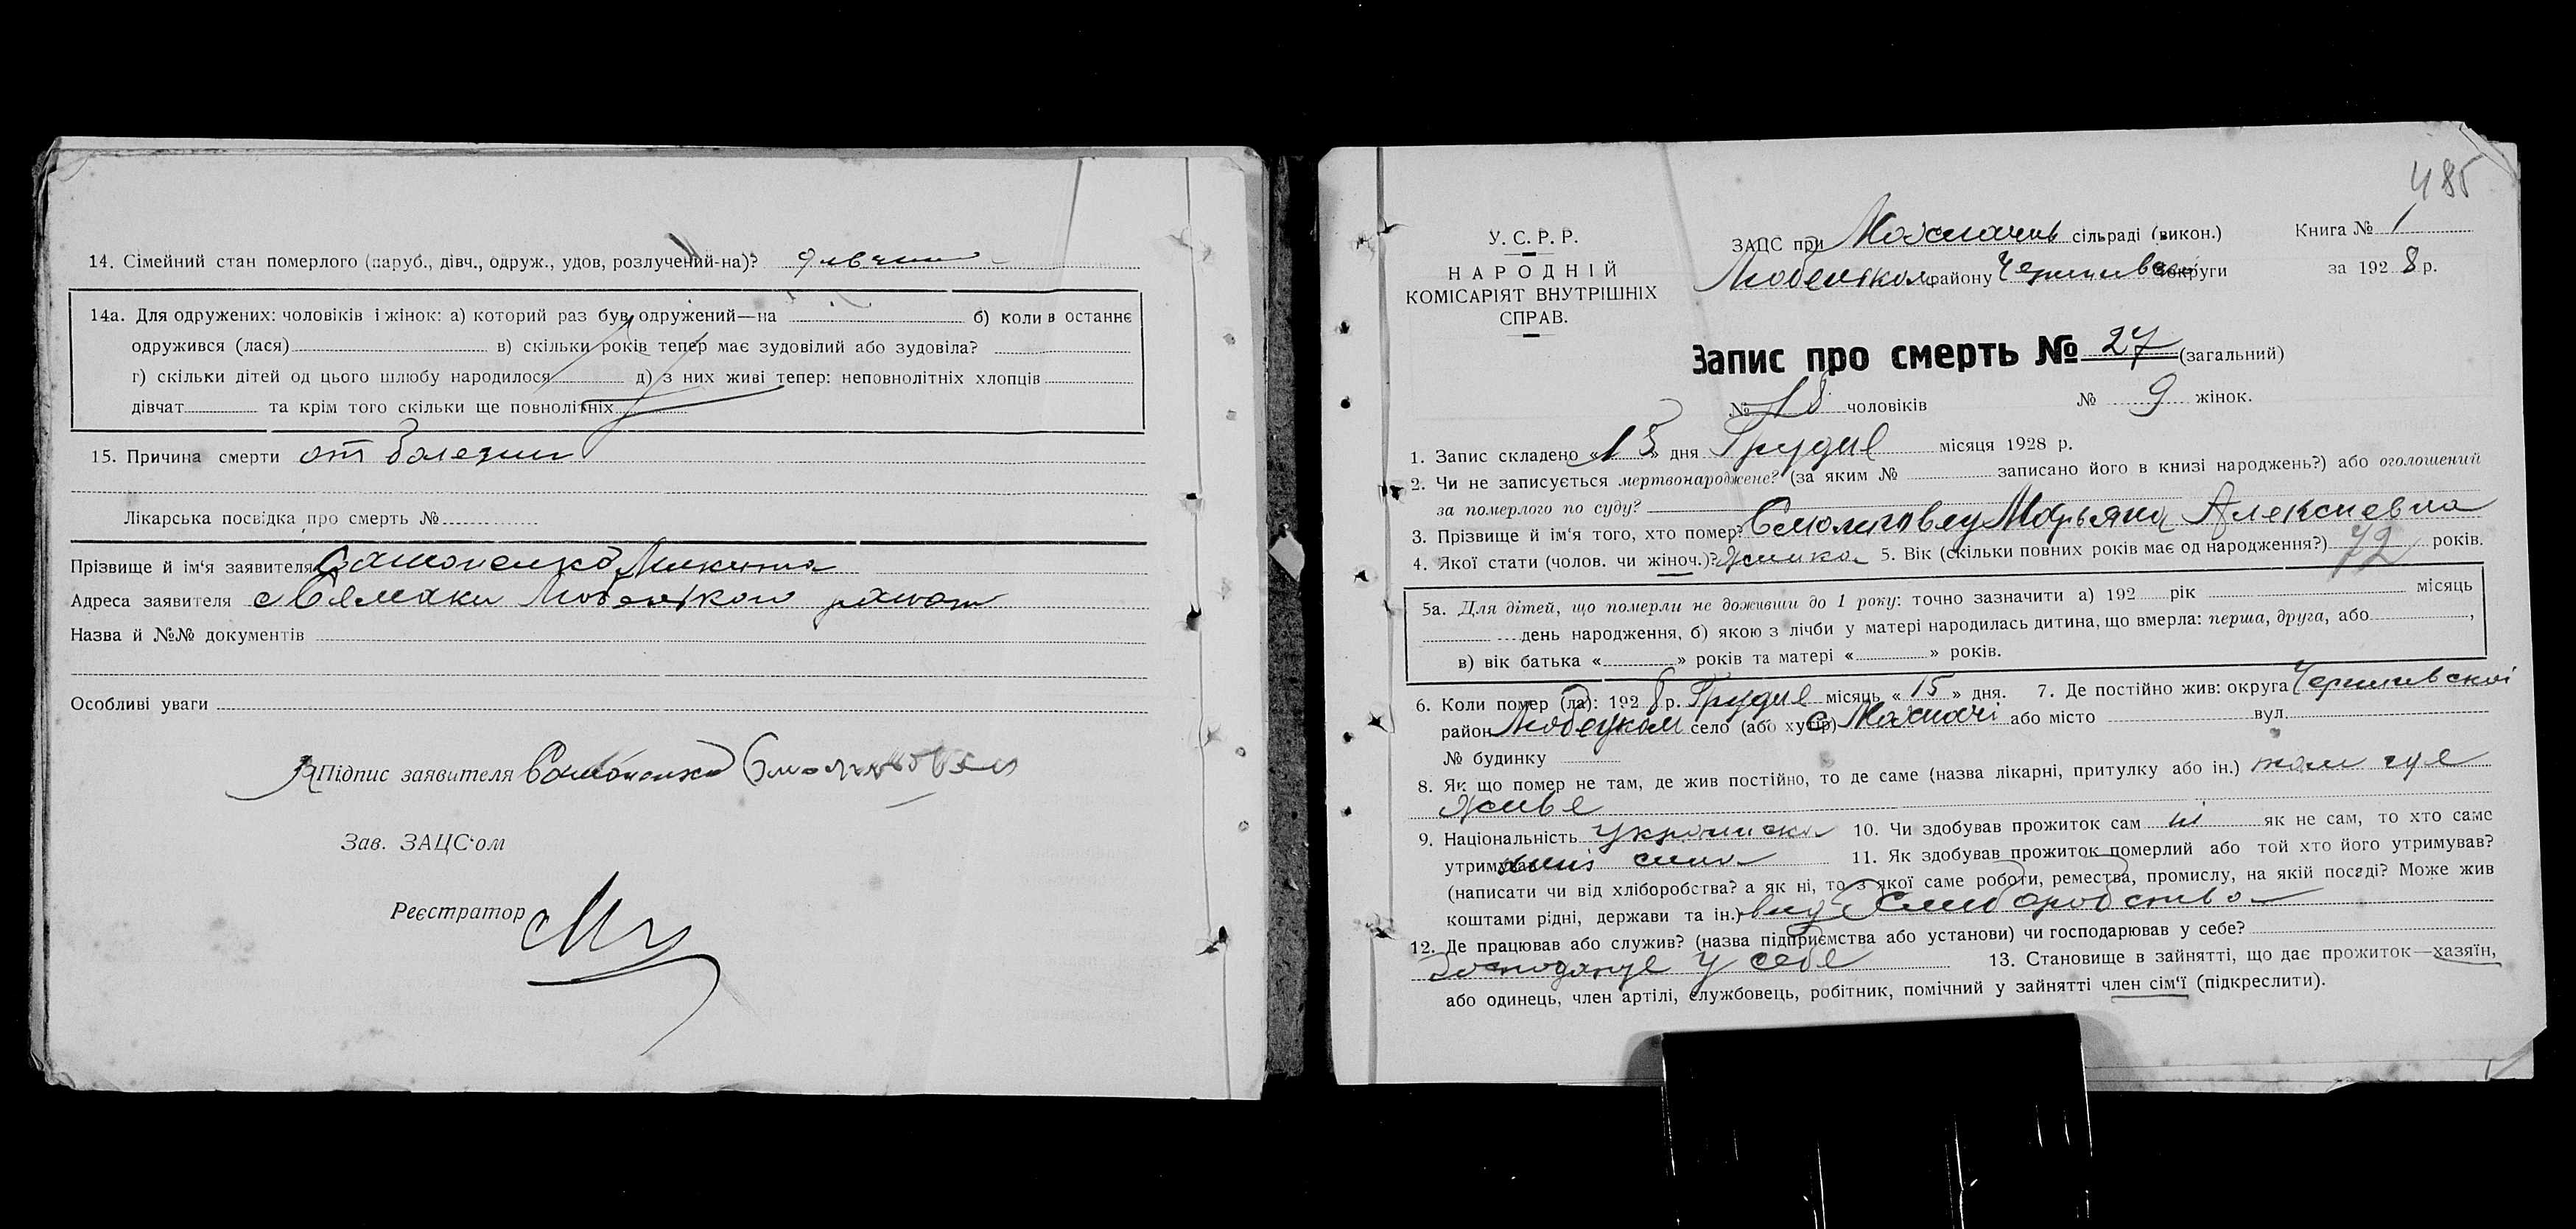 14. Сімейний стан померлого (паруб., дівч., одруж., удов, розлучений-на)?
14а. Для одружених: чоловіків і жінок: а) который раз був одружений—на б) коли в останнє
одружився (лася) в) скільки років тепер має зудовілий або зудовіла?
г) скільки дітей од цього шлюбу народилося д) з них живі тепер: неповнолітніх хлопців
дівчат та крім того скільки ще повнолітніх
15. Причина смерти от болезни
Лікарська посвідка про смерть №
Прізвище й ім'я заявителя Микита
Адреса заявителя с
Назва й №№ документів
Особливі уваги
Підпис заявителя
Зав. ЗАЦС'ом
Реєстратор
485
У. С. Р. Р.
НАРОДНІЙ
КОМІСАРІЯТ ВНУТРІШНІХ
СПРАВ.
ЗАЦС при сільраді (викон.) Книга № 1
району округи за 1928 р.
Запис про смерть № 27 (загальний)
№ 18 чоловіків № 9 жінок.
1. Запис складено «15» дня Грудня місяця 1928 р.
2. Чи не записується мертвонароджене? (за яким № записано його в книзі народжень?) або оголошений
за померлого по суду?
3. Прізвище й ім'я того, хто помер? Марьяна Алексеевна
4. Якої стати (чолов. чи жіноч.)? Жинка 5. Вік (скільки повних років має од народження?) 72 років.
5а. Для дітей, що померли не доживши до 1 року: точно зазначити а) 192 рік місяць
день народження, б) якою з лічби у матері народилась дитина, що вмерла: перша, друга, або ,
в) вік батька « » років та матері « » років.
6. Коли помер (ла): 1928 р. Грудня місяць «15» дня. 7. Де постійно жив: округа
район село (або хутір) с Махначі або місто вул.
№ будинку
8. Як що помер не там, де жив постійно, то де саме (назва лікарні, притулку або ін.) там где
живе
9. Національність украинска 10. Чи здобував прожиток сам ні як не сам, то хто саме
утримував 11. Як здобував прожиток померлий або той хто його утримував?
(написати чи від хліборобства? а як ні, то з якої саме роботи, ремества, промислу, на якій посаді? Може жив
коштами рідні, держави та ін.) вид хлиборобства
12. Де працював або служив? (назва підприємства або установи) чи господарював у себе?
господарує у себе 13. Становище в зайнятті, що дає прожиток—хазяїн,
або одинець, член артілі, службовець, робітник, помічний у зайнятті член сім'ї (підкреслити).